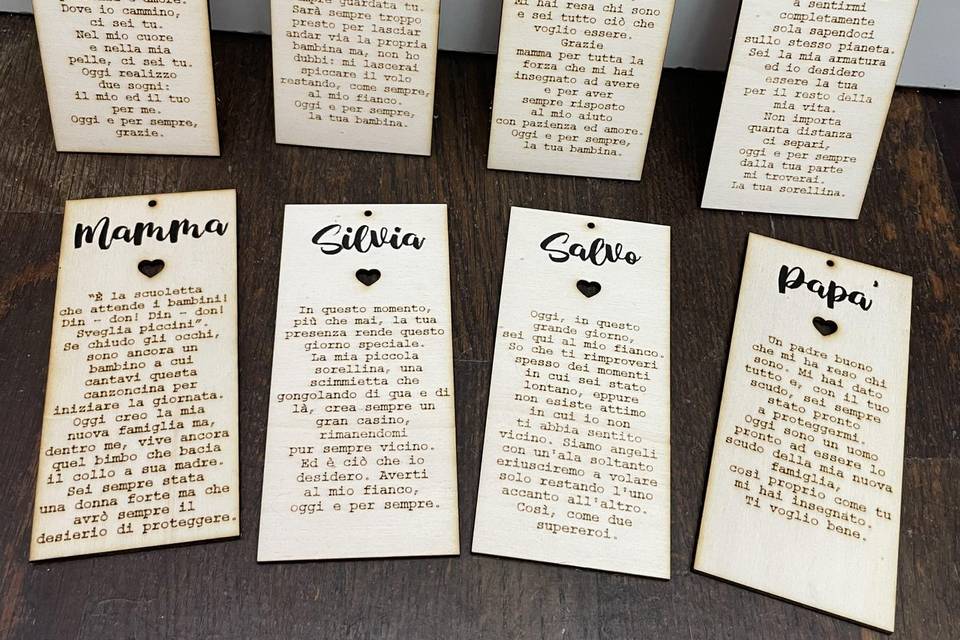 amore.
Dove io cammino,
ci sei tu.
Nel mio cuore
e nella mia
pelle, ci sei tu.
Oggi realizzo
due sogni:
il mio ed il tuo
per me.
Oggi e per sempre,
grazie.
guardata tu.
Sarà sempre troppo
presto per lasciar
andar via la propria
bambina ma, non ho
dubbi: mi lascerai
spiccare il volo
restando, come sempre,
al mio fianco.
Oggi e per sempre,
la tua bambina.
Mi hai resa chi sono
e sei tutto ciò che
voglio essere.
Grazie
mamma per tutta la
forza che mi hai
insegnato ad avere
e per aver
sempre risposto
al mio aiuto
con pazienza ed amore.
Oggi e per sempre,
la tua bambina.
a sentirmi
completamente
sola sapendoci
sullo stesso pianeta.
Sei la mia armatura
ed io desidero
essere la tua
per il resto della
mia vita.
Non importa
quanta distanza
ci separi,
oggi e per sempre
dalla tua parte
mi troverai.
La tua sorellina.
Mamma
"È la scuoletta
che attende i bambini!
Din - don! Din - don!
Sveglia piccini".
Se chiudo gli occhi,
sono ancora un
bambino a cui
cantavi questa
canzoncina per
iniziare la giornata.
Oggi creo la mia
nuova famiglia ma,
dentro me, vive ancora
quel bimbo che bacia
il collo a sua madre.
Sei sempre stata
una donna forte ma che
avrò sempre il
desierio di proteggere.
Silvia
In questo momento,
più che mai, la tua
presenza rende questo
giorno speciale.
La mia piccola
sorellina, una
scimmietta che
gongolando di qua e di
là, crea sempre un
gran casino,
rimanendomi
pur sempre vicino.
Ed è ciò che io
desidero. Averti
al mio fianco,
oggi e per sempre.
Salvo
Oggi, in questo
grande giorno,
sei qui al mio fianco.
So che ti rimproveri
spesso dei momenti
in cui sei stato
lontano, eppure
non esiste attimo
in cui io non
ti abbia sentito
vicino. Siamo angeli
con un'ala soltanto
eriusciremo a volare
solo restando l'uno
accanto all'altro.
Così, come due
supereroi.
Papa'
Un padre buono
che mi ha reso chi
sono. Mi hai dato
tutto e, con il tuo
scudo, sei sempre
stato pronto
a proteggermi.
Oggi sono un uomo
pronto ad essere lo
scudo della mia nuova
famiglia,
così proprio come tu
mi hai insegnato.
Ti voglio bene.